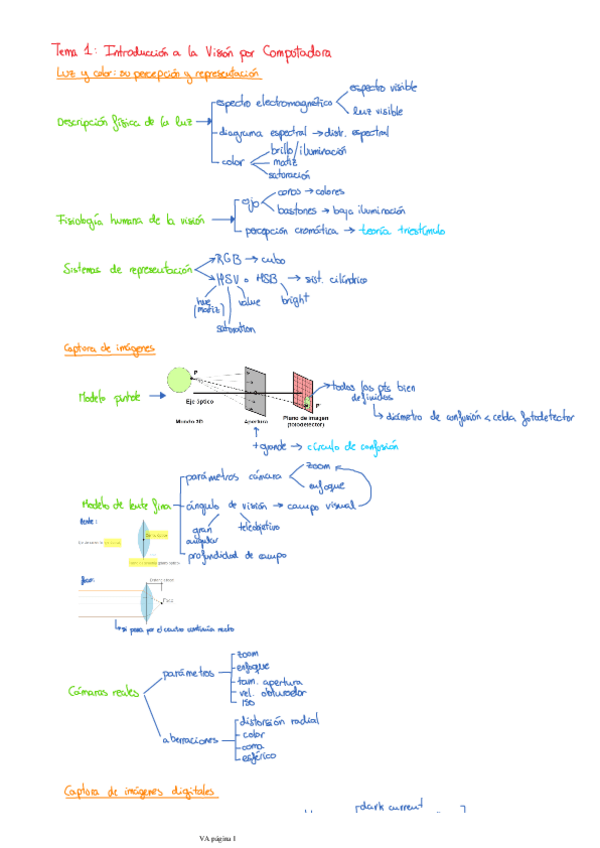 Tema 1: Introducción a la Visión por Computadora
Luz y color: su percepción y representación
Descripción física de la luz
espectro electromagnético
espectro visible
luz visible
diagrama espectral → distr. espectral
color
brillo/iluminación
matiz
saturación
Fisiología humana de la visión
ojo
conos → colores
bastones → baja iluminación
percepción cromática → teoría triestímulo
Sistemas de representación
RGB → cubo
HSV o HSB → sist. cilíndrico
hue (matiz)
value
bright
saturation
Captura de imágenes
Modelo puntual
P
Eje óptico
Mundo 3D
Apertura
Plano de imagen
(fotodetector)
todos los pts bien
definidos
diámetro de confusión < celda fotodetector
+ grande → círculo de confusión
Modelo de lente fina
parámetros cámara
zoom
enfoque
ángulo de visión → campo visual
gran
angular
teleobjetivo
profundidad de campo
lente:
foco:
si pasa por el centro continúa recto
Cámaras reales
parámetros
zoom
enfoque
tam. apertura
vel. obturador
ISO
aberraciones
distorsión radial
color
coma
esférico
Captura de imágenes digitales
dark current
VA página 1